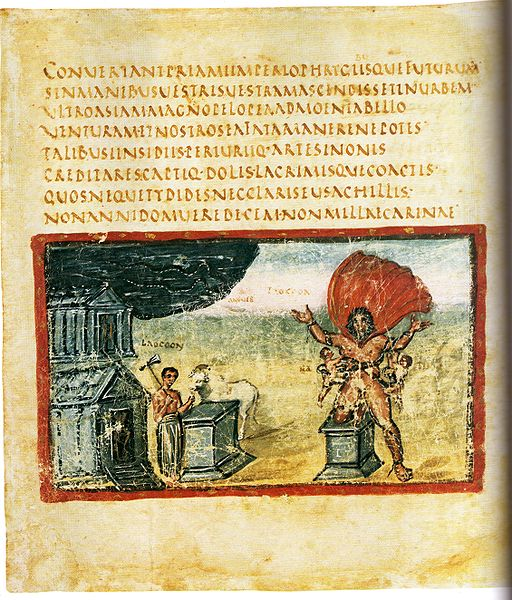 BU
CONVERTANTPRIAMIIMPERIOPHRYGIISQUEFUTURUM
SINMANIBUSUESTRISUESTRAMASCENDISSETINURBEM
ULTROASIAMMAGNOPELOPEAADMOENIABELLO
UENTURAM·ETNOSTROSEAFATAMANERENEPOTES
TALIBUSINSIDIIS·PERIURIIQ·ARTESINONIS
CREDITARES·CAPTIQ·DOLISLACRIMISQUECOACTIS·
QUOSNEQUETYDIDESNECCLARISEUSACHILLIS·
NONANNIDOMUEREDECEM·NONMILLECARINAE
LAOCOON
ANGUES
LAOCOON